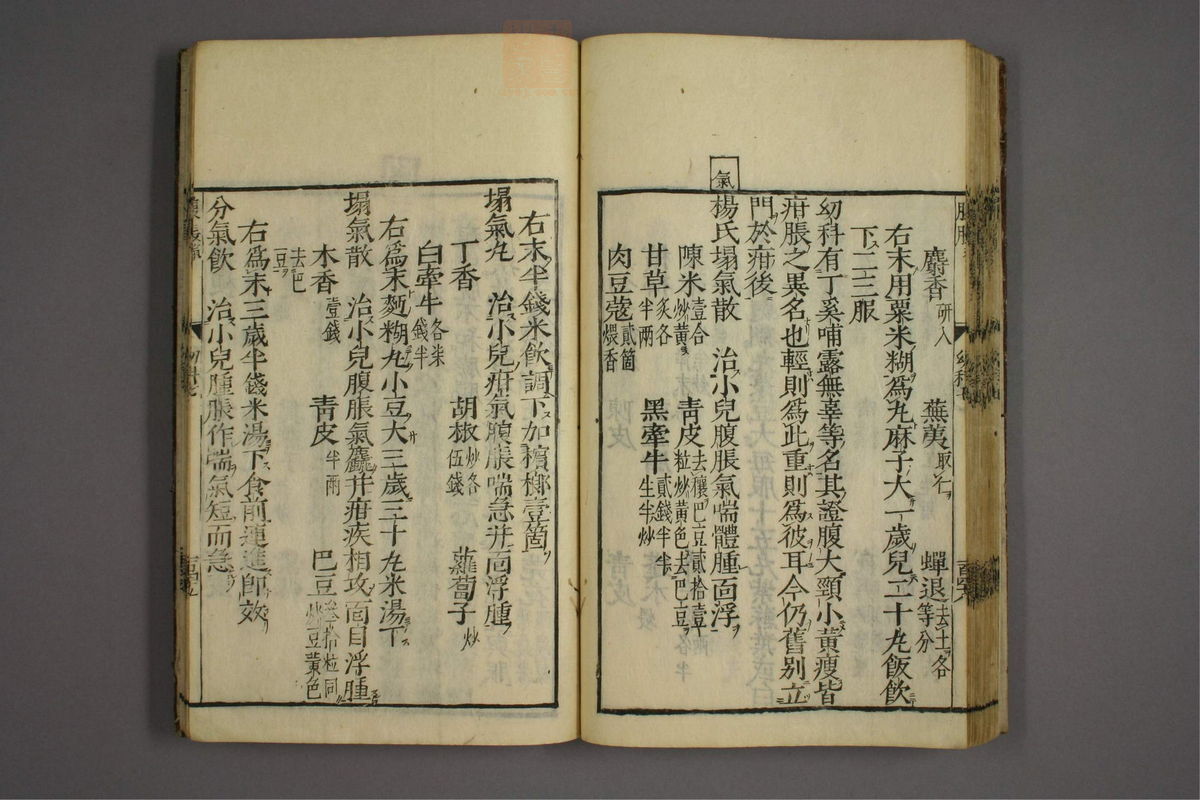 麝香研入 蕪荑取仁 蟬退去土各等分
右末用粟米糊爲丸麻子大一歲兒二十丸飯飲
下二三服
幼科有丁奚哺露無辜等名其證腹大頸小黃瘦皆
疳脹之異名也輕則爲此重則爲彼耳今仍舊别立
門於疳後
氣
楊氏塌氣散 治小兒腹脹氣喘體腫面浮
陳米壹合炒黃 青皮去穰巴豆貳拾壹粒炒黃色去巴豆
甘草炙各半兩 黑牽牛貳錢半半生半炒
肉豆蔲貳箇煨香
右末半錢米飲調下加檳榔壹箇
塌氣丸 治小兒疳氣腹脹喘急并面浮腫
丁香 胡椒炒各伍錢 蘿蔔子炒
白牽牛各柒錢半
右爲末麵糊丸小豆大三歲三十丸米湯下
塌氣散 治小兒腹脹氣麤并疳疾相攻面目浮腫
木香壹錢 青皮半兩 巴豆叁拾粒同炒豆黃色
去巴豆
右爲末三歲半錢米湯下食前連進即效
分氣飲 治小兒腫脹作喘氣短而急